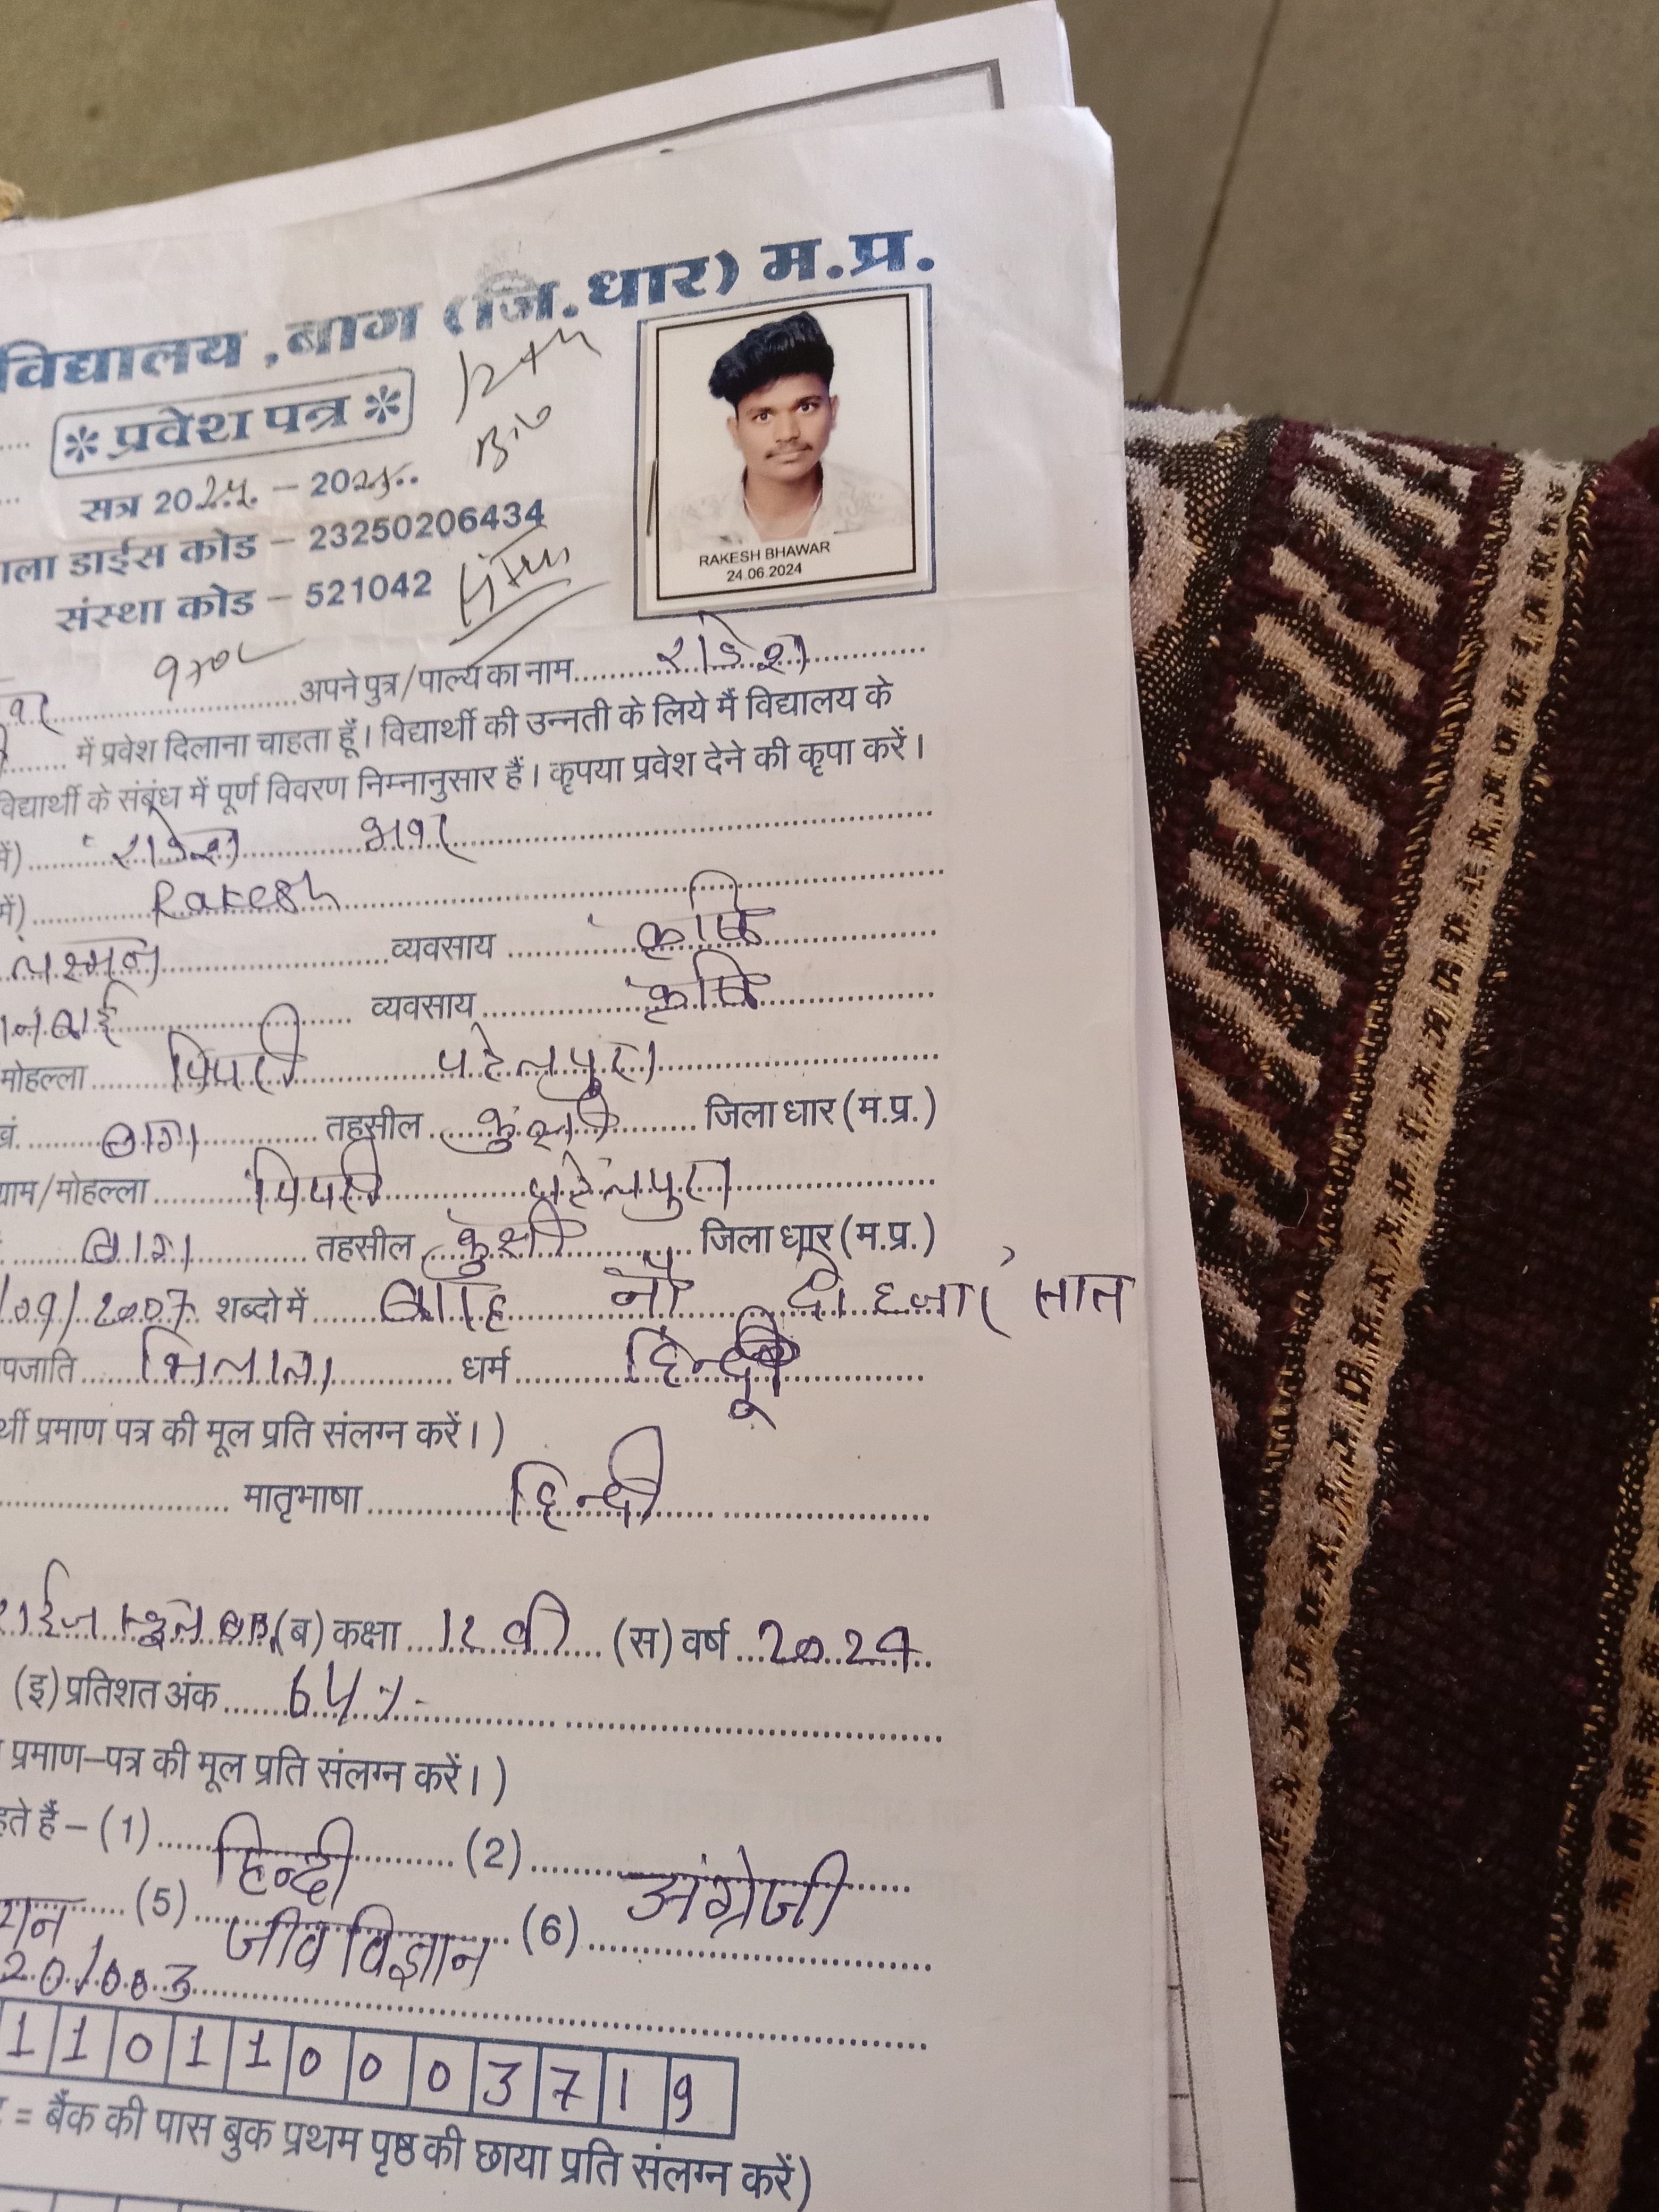 विद्यालय, बाग (जि.धार) म.प्र.
12th
Bio
* प्रवेश पत्र *
सत्र 2024 - 2025..
ला डाईस कोड - 23250206434
संस्था कोड - 521042
RAKESH BHAWAR
24.06.2024
वर ........ अपने पुत्र/पाल्य का नाम ........ राकेश ........
........ में प्रवेश दिलाना चाहता हूँ। विद्यार्थी की उन्नती के लिये मैं विद्यालय के
विद्यार्थी के संबंध में पूर्ण विवरण निम्नानुसार हैं। कृपया प्रवेश देने की कृपा करें।
में) ........ राकेश भवर ........
में) ........ Rakesh ........
लक्ष्मन ........ व्यवसाय ........ कृषि ........
नबाई ........ व्यवसाय ........ कृषि ........
मोहल्ला ........ पिपरी पटेलपुरा ........
खं. ........ बाग ........ तहसील ........ कुक्षी ........ जिला धार (म.प्र.)
ग्राम/मोहल्ला ........ पिपरी पटेलपुरा ........
........ बाग ........ तहसील ........ कुक्षी ........ जिला धार (म.प्र.)
/09/2007 शब्दो में ........ नौ दो हजार सात
पजाति ........ भिलाला ........ धर्म ........ हिन्दू ........
र्थी प्रमाण पत्र की मूल प्रति संलग्न करें।)
........ मातृभाषा ........ हिन्दी ........
राईज (ब) कक्षा ... 12 वी ... (स) वर्ष ... 2024 ..
(इ) प्रतिशत अंक ........ 64%. ........
प्रमाण-पत्र की मूल प्रति संलग्न करें।)
हते हैं - (1) ........ हिन्दी ........ (2) ........ अंग्रेजी ........
यन ........ (5) ........ जीव विज्ञान ........ (6) ........
1 1 0 1 1 0 0 0 3 7 1 9
= बैंक की पास बुक प्रथम पृष्ठ की छाया प्रति संलग्न करें)